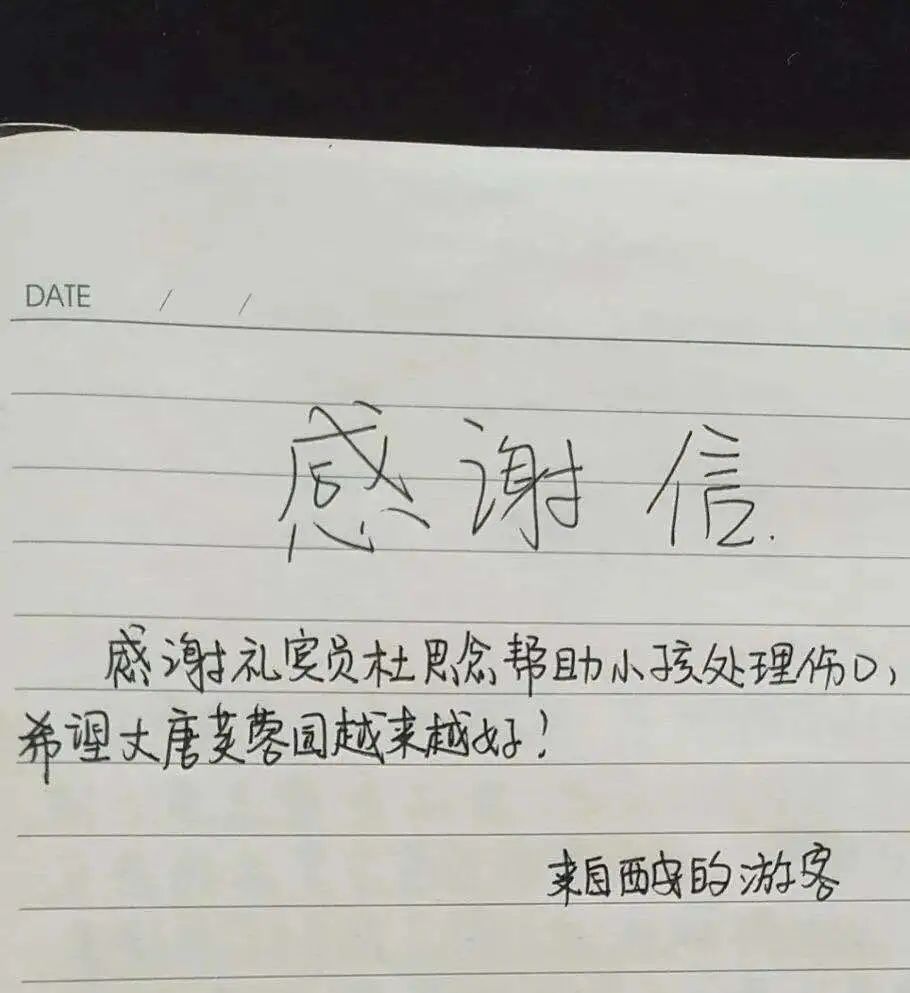 DATE / /
感谢信.
感谢礼宾员杜思念帮助小孩处理伤口,
希望大唐芙蓉园越来越好!
来自西安的游客